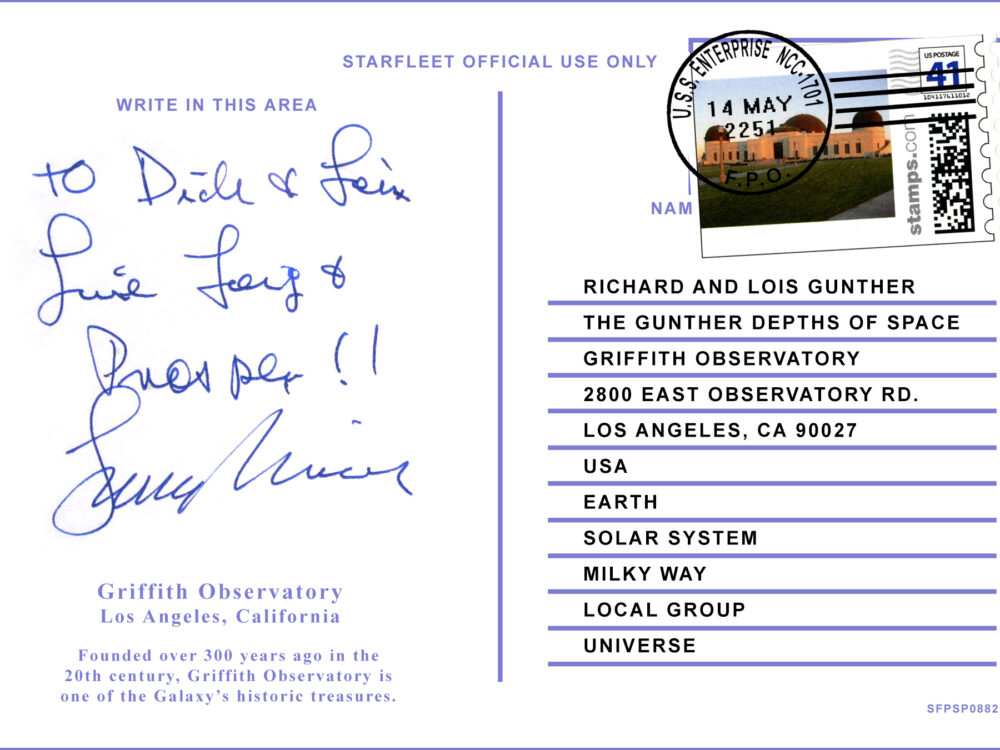 STARFLEET OFFICIAL USE ONLY
WRITE IN THIS AREA
To Dick & Lois
Live Long &
Prosper!!
U.S.S. ENTERPRISE NCC-1701
14 MAY
2251
F.P.O.
US POSTAGE
41
stamps.com
NAM
RICHARD AND LOIS GUNTHER
THE GUNTHER DEPTHS OF SPACE
GRIFFITH OBSERVATORY
2800 EAST OBSERVATORY RD.
LOS ANGELES, CA 90027
USA
EARTH
SOLAR SYSTEM
MILKY WAY
LOCAL GROUP
UNIVERSE
Griffith Observatory
Los Angeles, California
Founded over 300 years ago in the
20th century, Griffith Observatory is
one of the Galaxy's historic treasures.
SFPSP0882